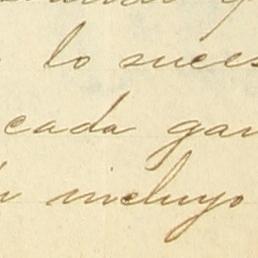 lo suces
cada gar
incluyo